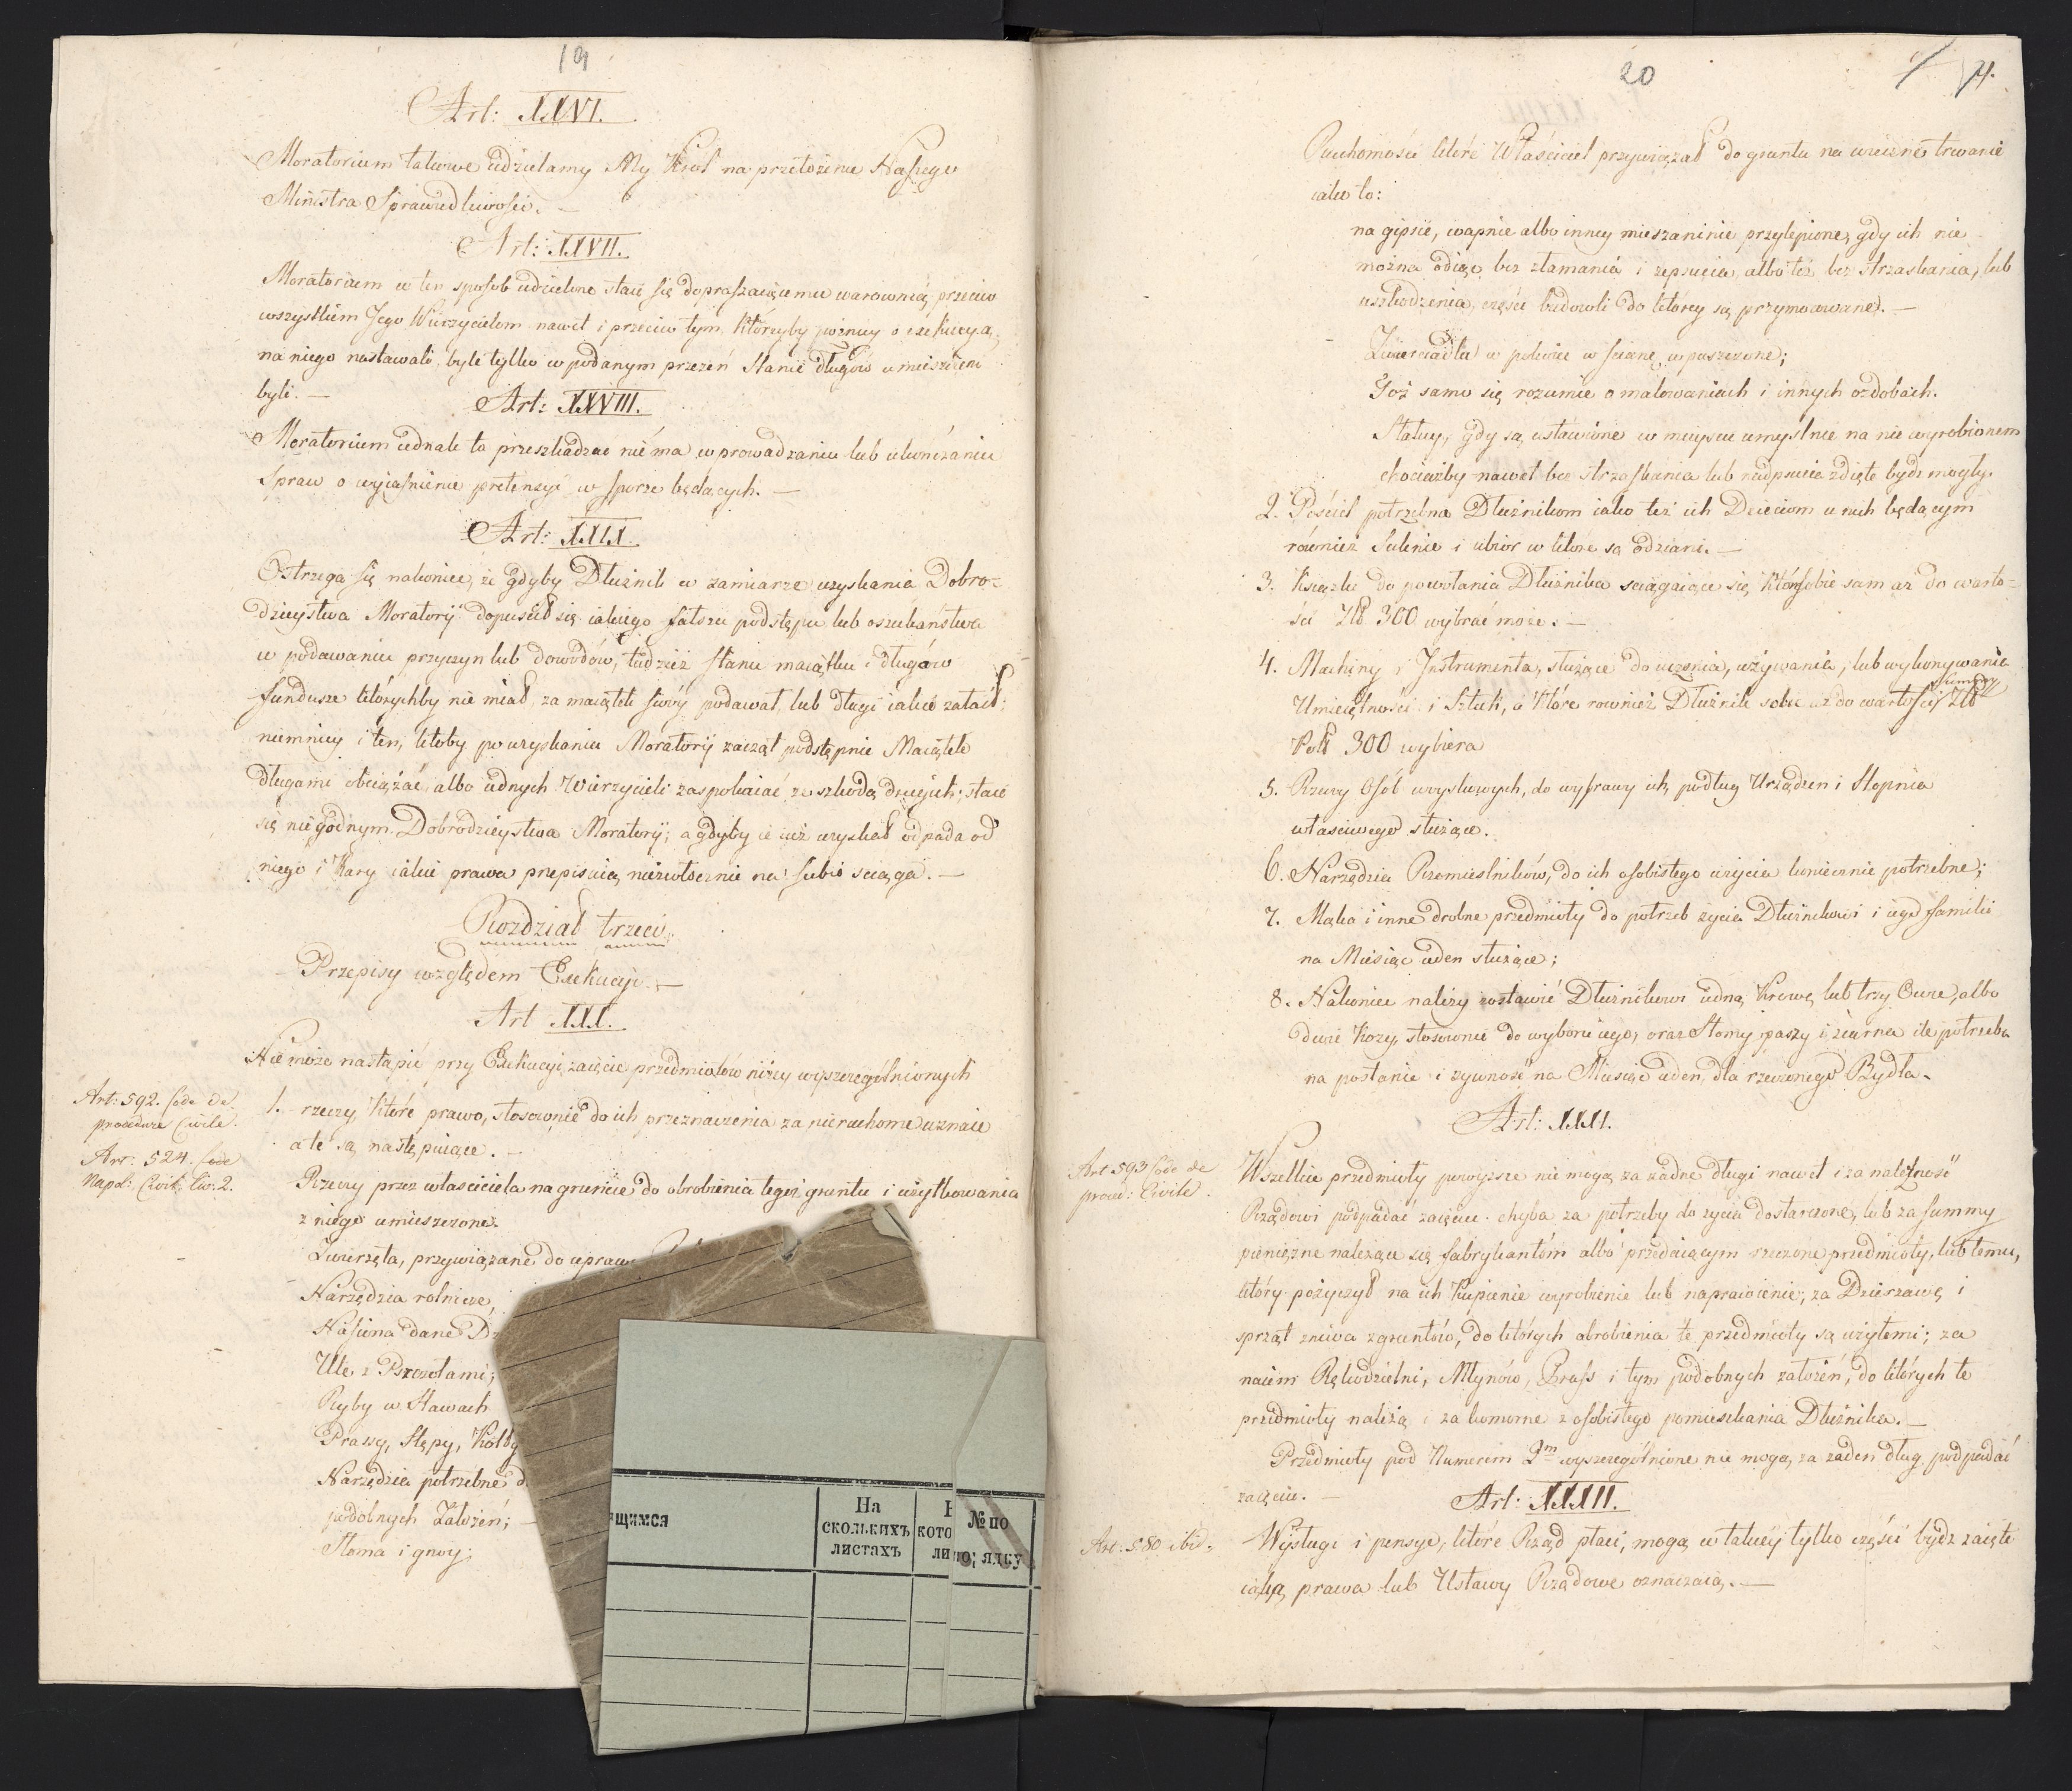 19
Art: XXVI.
Moratorium takowe udzielamy My Król na przełożenie Naszego
Ministra Sprawiedliwości. —
Art: XXVII.
Moratorium w ten sposób udzielone staie się dopraszaiącemu warownią przeciw
wszystkim Jego Wierzycielom nawet i przeciw tym, którzyby pożniey o exekucyą
na niego nastawali, byle tylko w podanym przezeń Stanie długów umieszczeni
byli. —
Art: XXVIII.
Moratorium iednak to przeszkadzać niema w prowadzaniu lub ukończaniu
Spraw o wyiaśnienie pretensyi w sporze będących. —
Art: XXIX.
Ostrzega się nakoniec, że gdyby Dłużnik w zamiarze uzyskania Dobro=
dzieystwa Moratorÿ dopuścił się iakiego fałszu podstępu lub oszukaństwa
w podawaniu przyczyn lub dowodów, tudzież stanu maiątku i długów
fundusze którychby nie miał, za maiątek swóy podawał, lub długi iakie zataił;
niemniey i ten, któby po uzyskaniu Moratorÿ zaczął podstępnie Maiątek
długami obciążać, albo iednych Wierzycieli zaspokaiać ze szkodą drugich; staie
się niegodnym Dobrodzieystwa Moratorÿ; a gdyby ie iuż uzyskał odpada od
niego i Kary iakie prawa przepisuią niezwłocznie na siebie ściąga. —
Rozdział trzeci
Przepisy względem Exekucyi. —
Art XXX.
Nie może nastąpić przy Exekucyi zaięcie przedmiotów niżey wyszczególnionych
Art: 592. Code de
procedure Civile.
1. rzeczy, które prawo, stosownie do ich przeznaczenia za nieruchome uznaie
a te są następuiące. —
Art: 524. Code
Napol: Civil. Liv. 2.
Rzeczy przez właściciela na gruncie do obrobienia tegoż gruntu i użytkowania
z niego umieszczone.
Zwierzęta, przywiązane do upraw
Narzędzia rolnicze,
Nasiona dane
Ule z Pszczołami;
Ryby w Stawach
Prassy, Stępy, Kotły
Narzędzia potrzebne d
podobnych Założeń;
Słoma i gnoy;
щимся
На
сколькихъ
листахъ
кото
ли
№ по
ядку
20
Ruchomości które Właściciel przywiązał do gruntu na wieczne trwanie
iako to:
na gipsie, wapnie albo inney mieszaninie przylepione, gdy ich nie
można odiąć bez złamania i zepsucia, albo też bez strzaskania, lub
uszkodzenia, części budowli do którey są przymocowane. —
Zwierciadła w polowie w ścianę wpuszczone;
Toż samo się rozumie o malowaniach i innych ozdobach.
Statuy, gdy są ustawione w mieyscu umyślnie na nie wyrobionem
chociażby nawet bez strzaskania lub nadpsucia zdięte bydź mogły.
2. Pościel potrzebna Dłużnikom iako też ich Dzieciom u nich będącym
również Suknie i ubiór w które są odziani. —
3. Książki do powołania Dłużnika ściągaiące się, które sobie sam aż do warto=
ści Złł 300 wybrać może. —
4. Machiny i Instrumenta, służące do uczenia, używania, lub wykonywania
Umieiętności i Sztuk, które rownież Dłużnik sobie aż do wartości summy Złł
Poll 300 wybiera
5. Rzeczy Osób woyskowych, do wyprawy ich, podług Urządzeń i Stopnia
właściwego służące.
6. Narzędzia Rzemieslników, do ich osobistego użycia koniecznie potrzebne;
7. Mąka i inne drobne przedmioty do potrzeb życia Dłużnikowi i iego familii
na Miesiąc ieden służące;
8. Nakoniec należy zostawić Dłużnikowi iedną Krowę, lub trzy Owce, albo
dwie Kozy, stosownie do wyboru iego, oraz Słomy, paszy i ziarna ile potrzeba
na posłanie i żywność na Miesiąc ieden, dla rzeczonego Bydła.
Art: XXXI.
Art 593 Code de
proced: Civile.
Wszelkie przedmioty powyższe nie mogą za żadne długi nawet i za należność
Rządowi podpadać zaięciu. chyba za potrzeby do życia dostarczone, lub za summy
pieniężne należące się fabrykantóm albo przedaiącym rzeczone przedmioty, lub temu,
który pożyczył na ich Kupienie wyrobienie lub naprawienie; za Dzierzawę i
sprząt żniwa zgruntów, do których obrobienia te przedmioty są użytemi; za
naiem Rękodzielni, Młynów, Prass i tym podobnych założeń, do których te
przedmioty należą i za komorne z osobistego pomieszkania Dłużnika. —
Przedmioty pod Numerem 2m wyszczególnione nie mogą za żaden dług podpadać
zaięciu. —
Art: XXXII.
Art: 580 ibid.
Wysługi i pensye, które Rząd płaci, mogą w takiéy tylko części bydź zaięte
iaką prawa lub Ustawy Rządowe oznaczaią. —